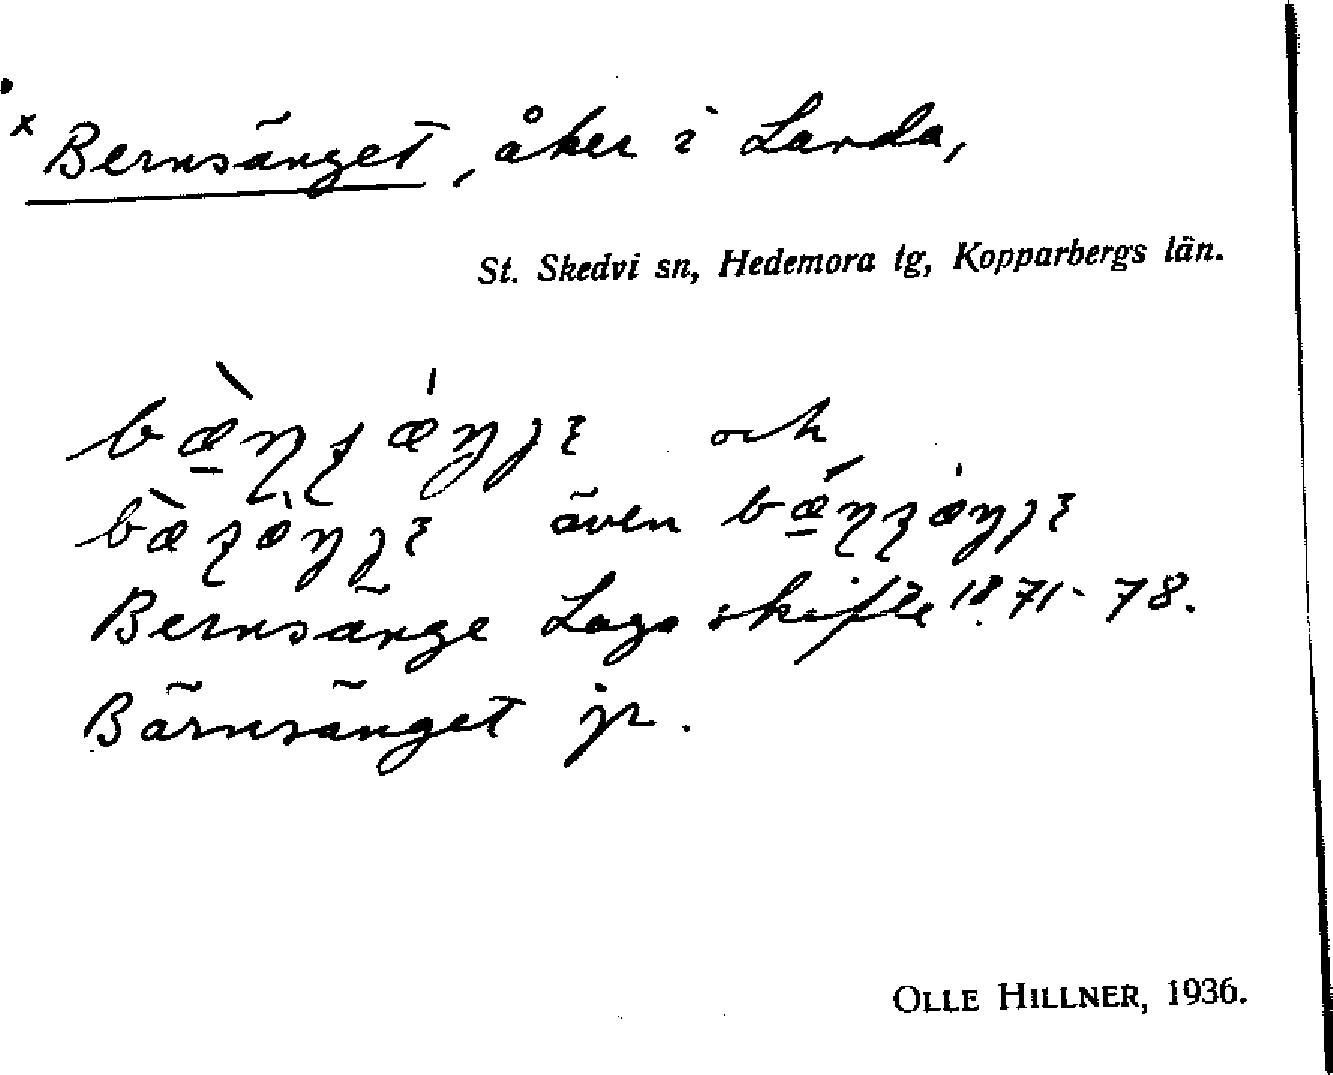 x Bernsänget, åker i Landa,
St. Skedvi sn, Hedemora tg, Kopparbergs län.
och
även
Bernsänge Laga skifte 1871-78.
Bärnsänget jr.
OLLE HILLNER, 1936.